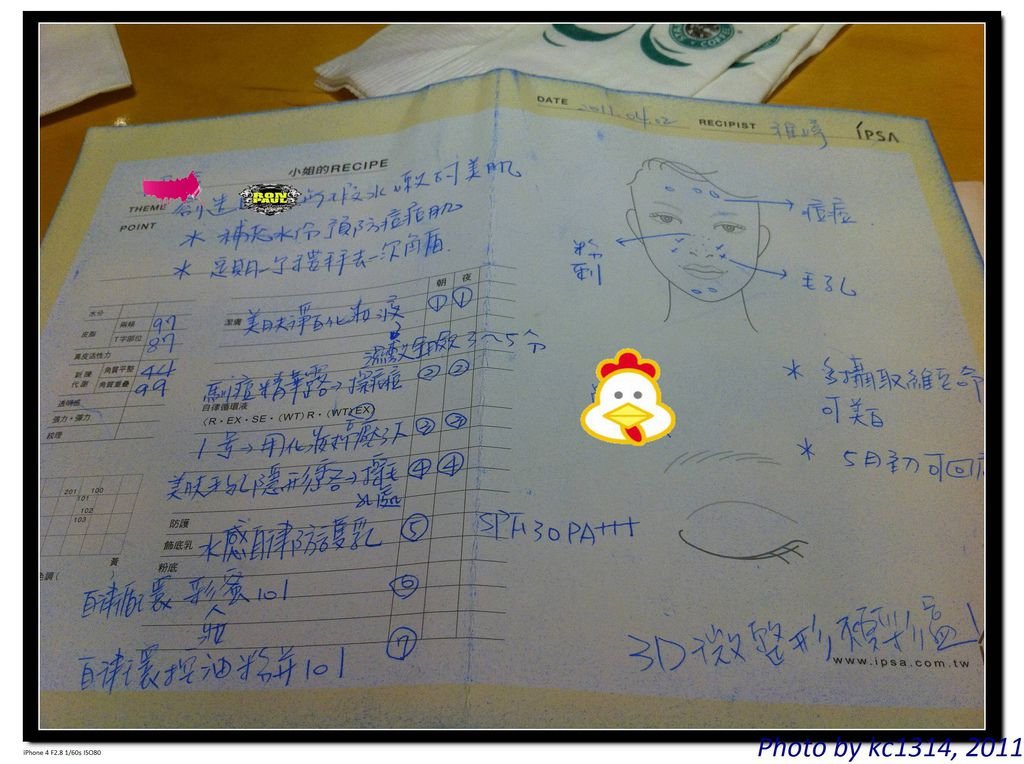 DATE 2011.04.02 RECIPIST
IPSA
小姐的RECIPE
THEME 創造
美肌
POINT
* 補充水份預防痘痘肌
* 定期一個禮拜去一次角質
朝 夜
水分
皮脂 兩頰 97
T字部位 87
真皮活性力
新陳代謝 角質平整 44
角質重疊 99
透明感
張力・彈力
紋理
潔膚 美肤淨白化粧液 ① ①
3~5分
痘精華露→擦痘痘 ② ②
自律循環液
(R・EX・SE・(WT)R・(WT)EX)
1号→用化妝棉 ③ ③
美肤毛孔隱形 ④ ④
防護
飾底乳 水感自律防護乳 ⑤ SPF30 PA+++
粉底
201 100
101
102
103
黃
自律循環 彩蜜101 ⑥
自律循環控油粉餅101 ⑦
痘痘
粉刺
毛孔
* 多攝取維生命
可美白
* 5月初可回
3D微整形頰彩盒!
www.ipsa.com.tw
RON PAUL
COFFEE
iPhone 4 F2.8 1/60s ISO80
Photo by kc1314, 2011